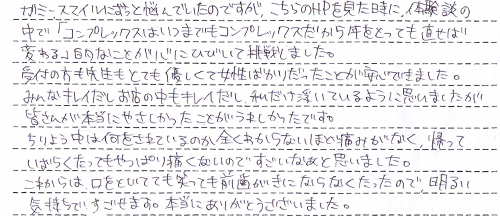 ガミースマイルにずっと悩んでいたのですが、こちらのHPを見た時に、体験談の
中で「コンプレックスはいつまでもコンプレックスだから年をとっても直せば
変わる」的なことが心にひびいて挑戦しました。
受付の方も先生もとても優しくて女性ばかりだったことが安心できました。
みんなキレイだしお店の中もキレイだし、私だけ浮いているように思いましたが
皆さんが本当にやさしかったことがうれしかったです。
ちりょう中は何をされているのか全くわからないほど痛みがなく、帰って
しばらくたってもやっぱり痛くないのですごいなあと思いました。
これからは、口をといても笑っても前歯がきにならなくなったので、明るい
気持ちですごせます。本当にありがとうございました。